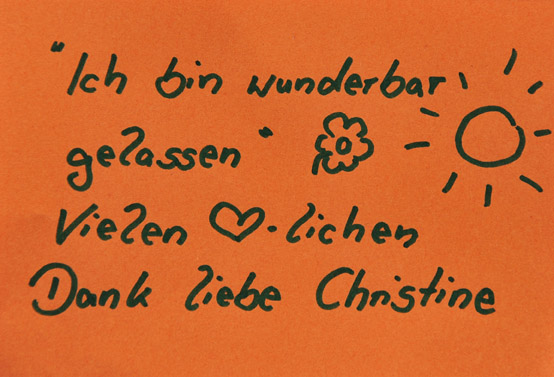 "Ich bin wunderbar
gelassen"
Vielen ♡-lichen
Dank liebe Christine